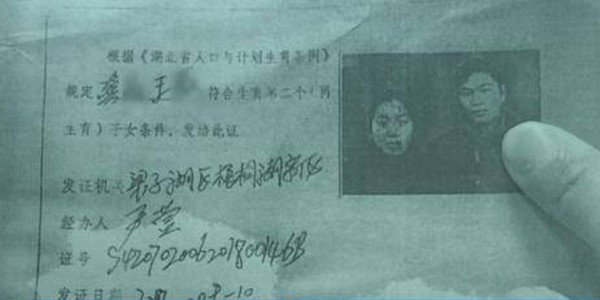 根据《湖北省人口与计划生育条例》
规定 龚 王 符合生育第二个(再
生育)子女条件，发给此证
发证机关 梁子湖区梧桐湖新区
经办人
证号 S420702006201800146B
发证日期 08-10